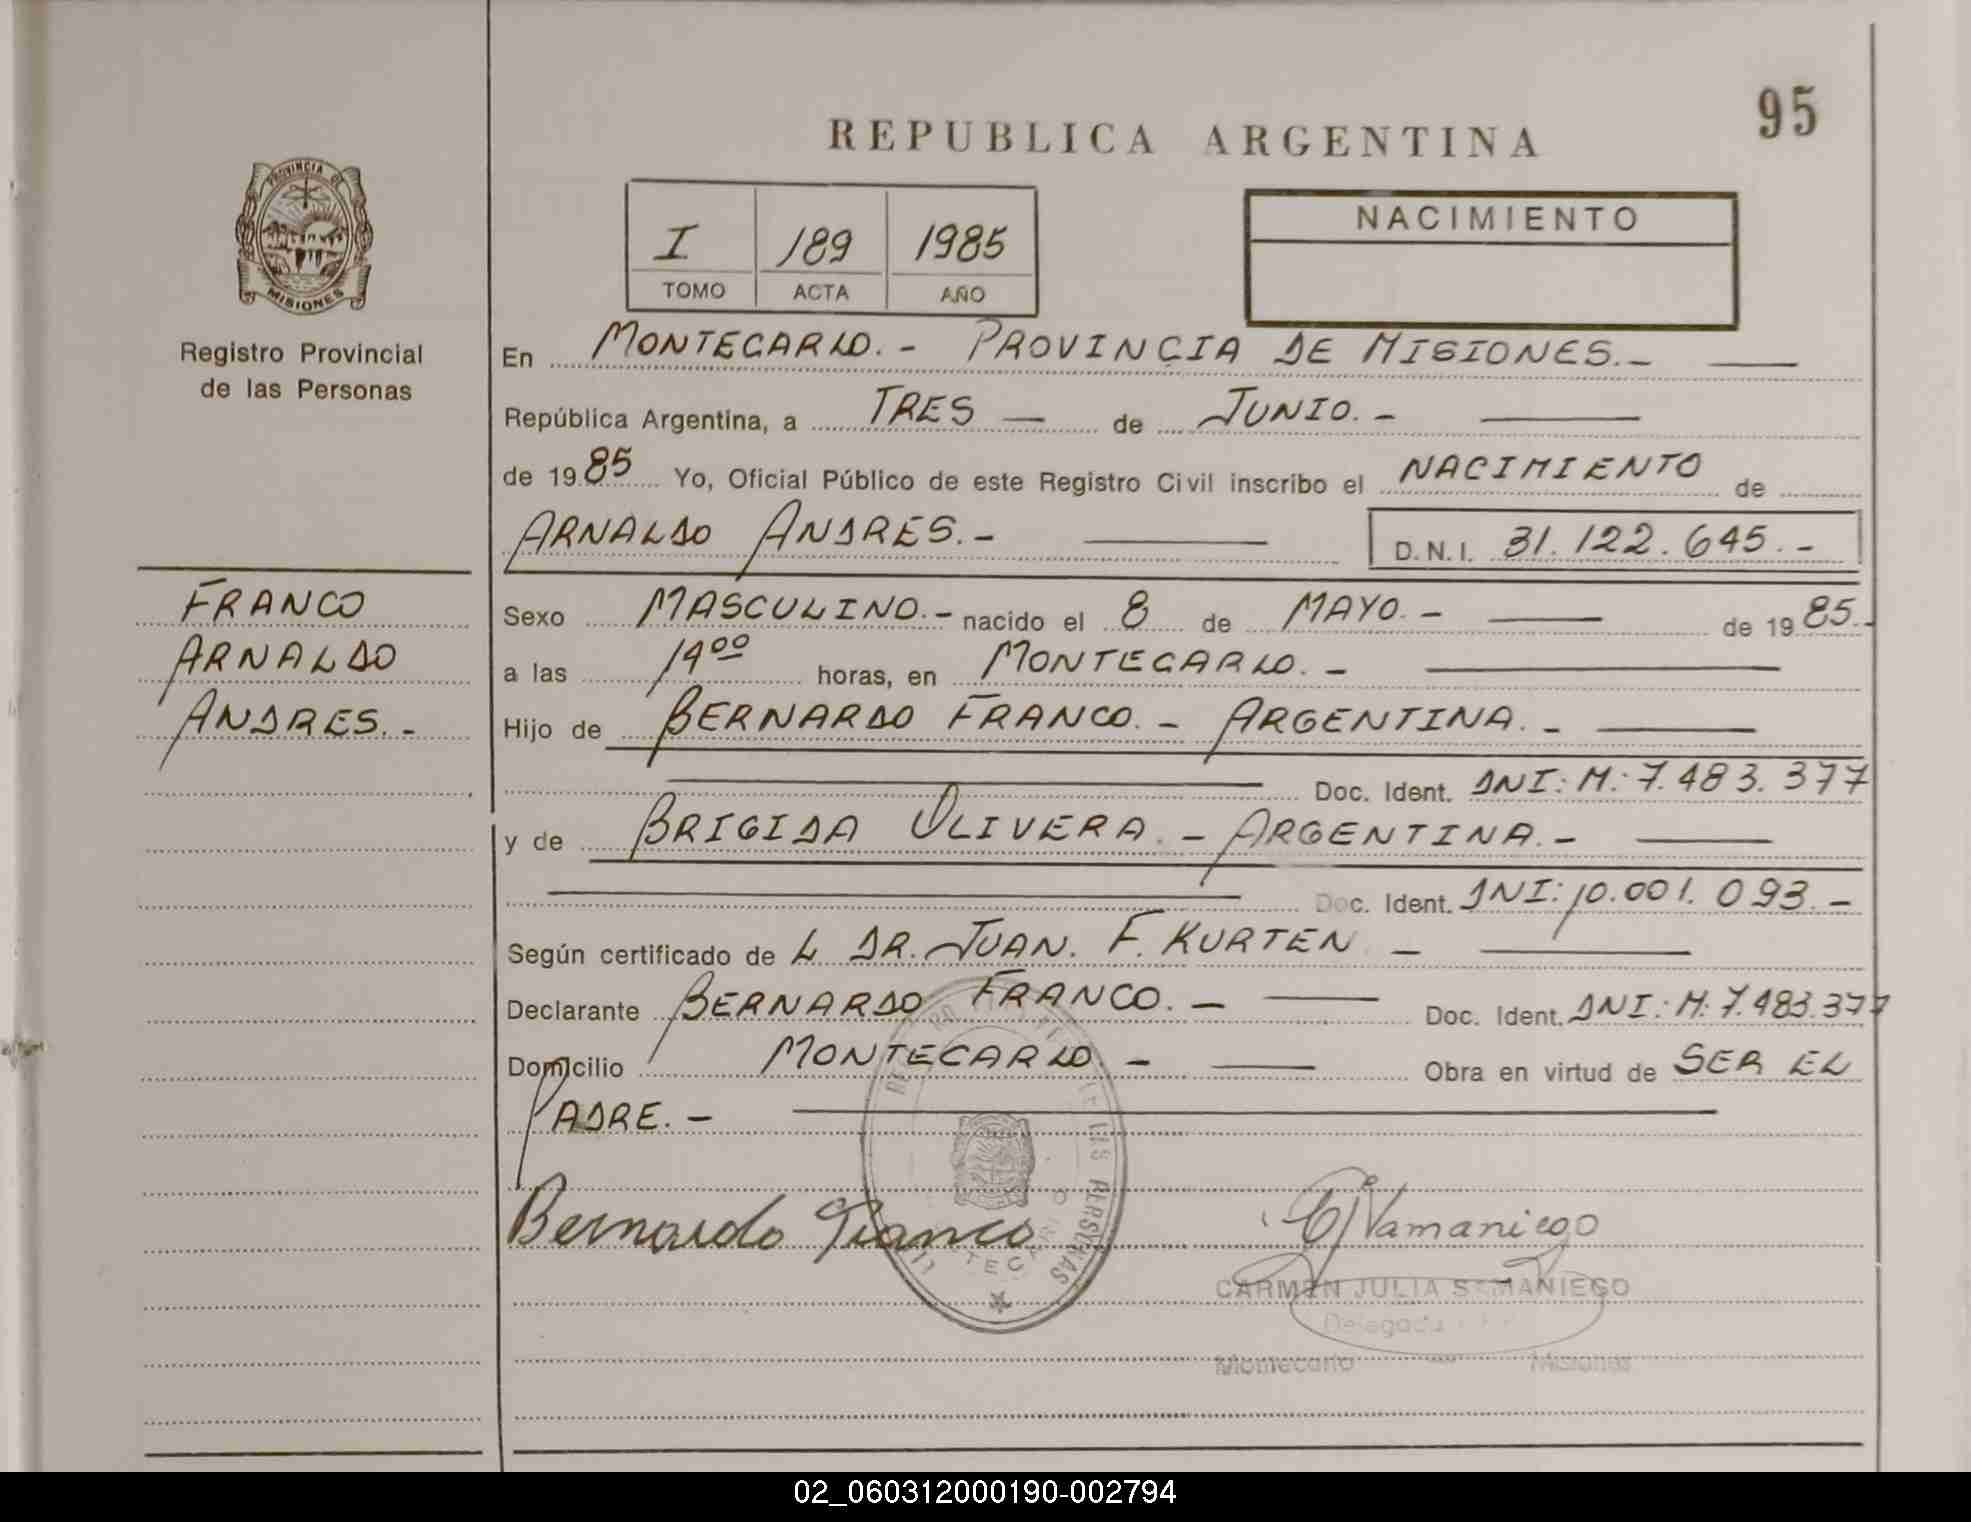 95
REPUBLICA ARGENTINA
PROVINCIA DE
MISIONES
Registro Provincial
de las Personas
I 189 1985
TOMO ACTA AÑO
NACIMIENTO
En MONTECARLO.- PROVINCIA DE MISIONES.-
República Argentina, a TRES — de JUNIO.-
de 1985 Yo, Oficial Público de este Registro Civil inscribo el NACIMIENTO de
ARNALDO ANDRES.- D.N.I. 31.122.645.-
FRANCO
ARNALDO
ANDRES.-
Sexo MASCULINO.- nacido el 8 de MAYO.- de 1985.-
a las 14⁰⁰ horas, en MONTECARLO.-
Hijo de BERNARDO FRANCO.- ARGENTINA.-
Doc. Ident. DNI: M: 7.483.377
y de BRIGIDA OLIVERA.- ARGENTINA.-
Doc. Ident. DNI: 10.001.093.-
Según certificado de L DR. JUAN. F. KURTEN -
Declarante BERNARDO FRANCO.- Doc. Ident. DNI: M: 7.483.377
Domicilio MONTECARLO - Obra en virtud de SER EL
PADRE.-
Bernardo Franco
CJSamaniego
CARMEN JULIA SAMANIEGO
Delegada
Montecarlo — Misiones
DE LAS PERSONAS
02_060312000190-002794